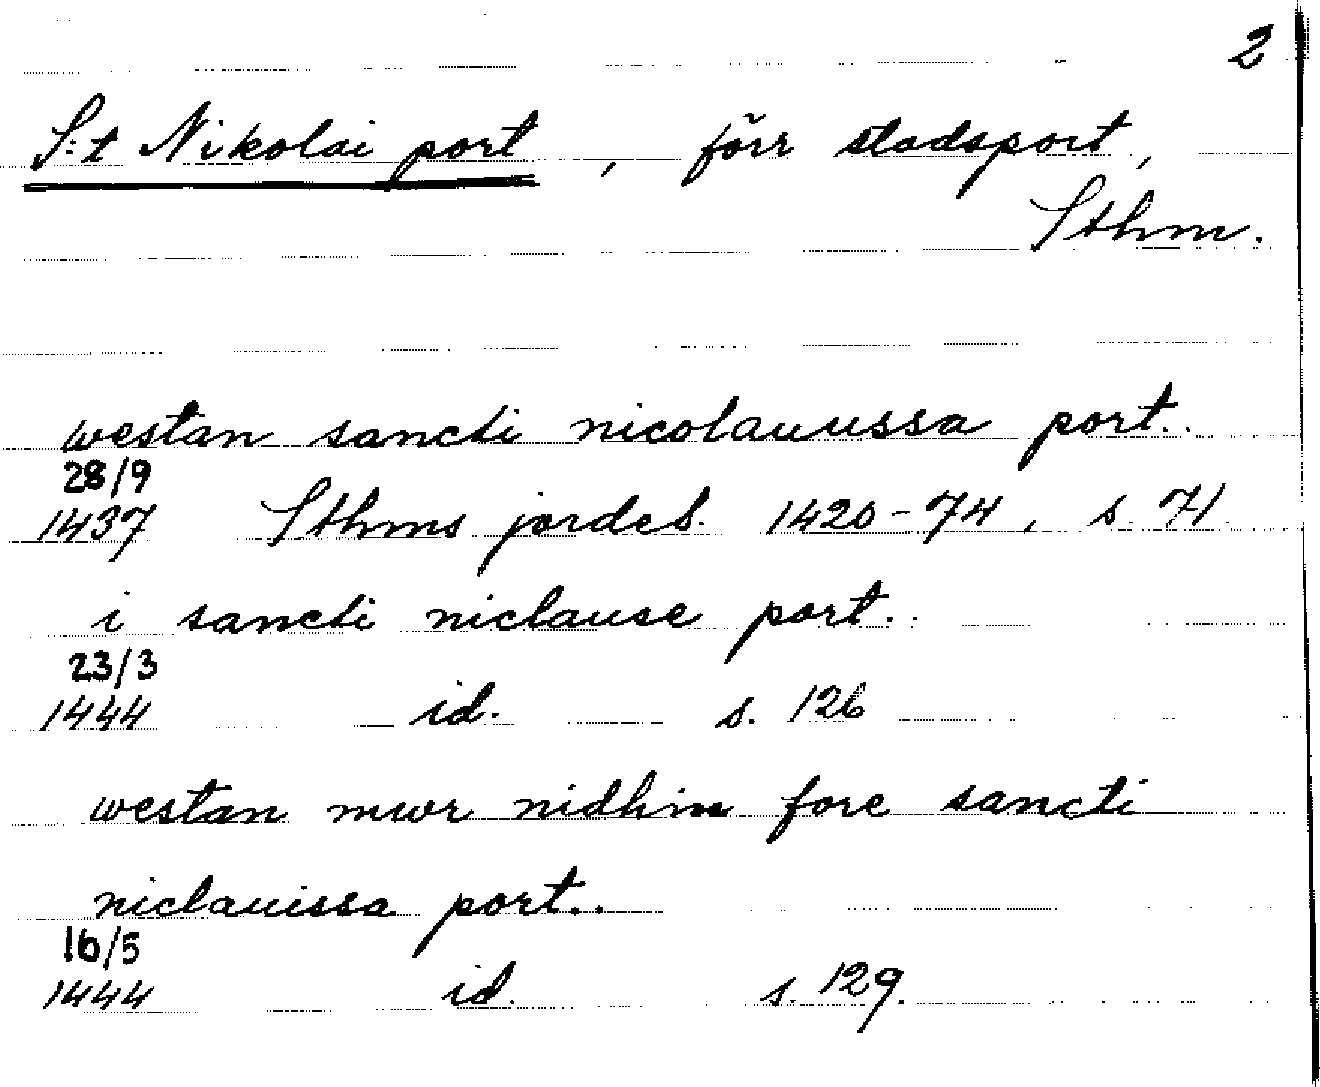 2
S:t Nikolai port, förr stadsport,
Sthm.
westan sancti nicolauussa port..
28/9
1437 Sthms jordeb. 1420-74, s. 71
i sancti niclause port..
23/3
1444 id. s. 126
westan mwr nidhin fore sancti
niclauissa port..
16/5
1444 id. s. 129.